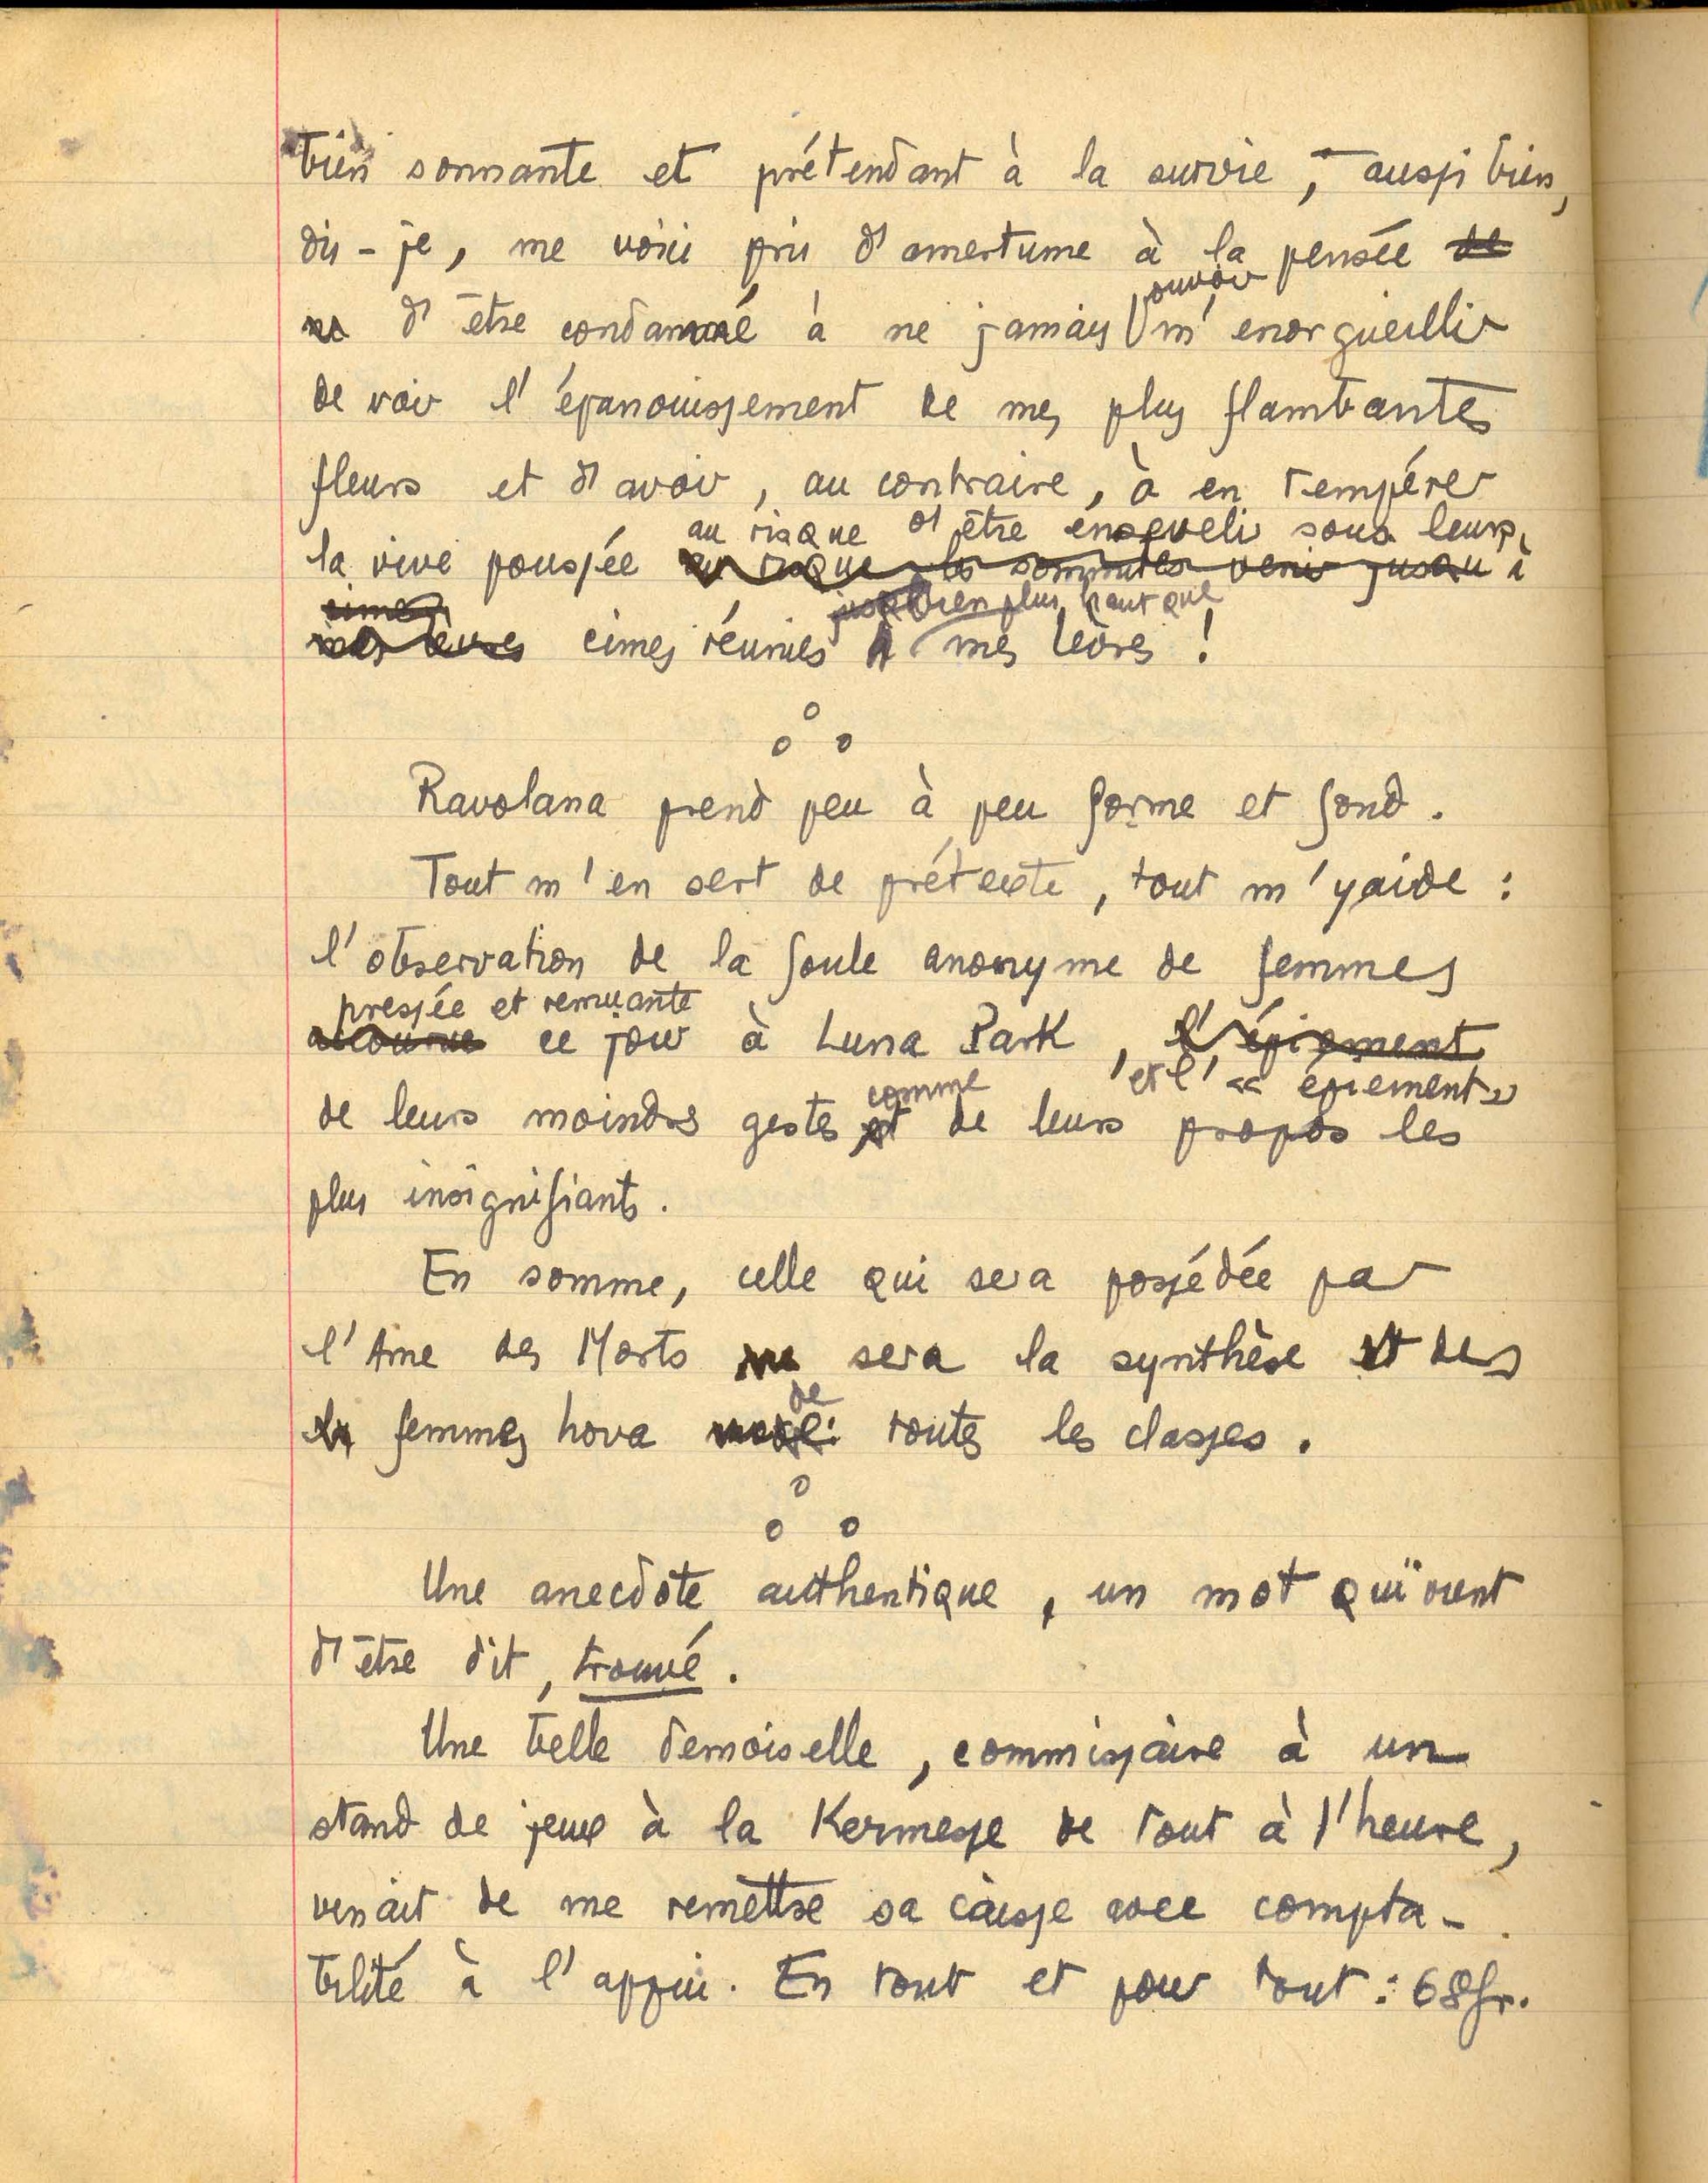 bien sonnante et prétendant à la survie, – aussi bien,
dis-je, me voici pris d'amertume à la pensée de
ne d'être condamné à ne jamais pouvoir m'enorgueillir
de voir l'épanouissement de mes plus flambantes
fleurs et d'avoir, au contraire, à en tempérer
au risque d'être enseveli sous leurs
la vive poussée au risque les sommités venir jusqu'à
cimes bien plus haut que
mes lèvres cimes réunies à mes lèvres !
o
o o
Ravolana prend peu à peu forme et fond.
Tout m'en sert de prétexte, tout m'y aide :
l'observation de la foule anonyme de femmes
pressée et remuante
accourue ce jour à Luna Park, l'épiement
et l' « épiement »
comme
de leurs moindres gestes et de leurs propos les
plus insignifiants.
En somme, celle qui sera possédée par
l'Ame des Morts sera la synthèse et des
de
femmes hova toutes les classes.
o
o o
Une anecdote authentique, un mot qui vient
d'être dit, trouvé.
Une belle demoiselle, commissaire à un
stand de jeux à la Kermesse de tout à l'heure,
venait de me remettre sa caisse avec compta-
bilité à l'appui. En tout et pour tout : 68 fr.